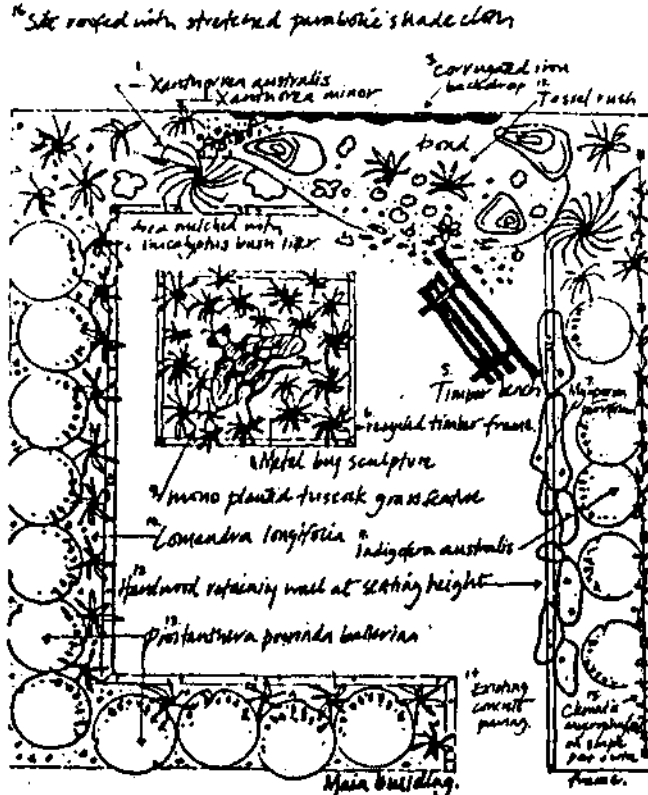 16 Site roofed with stretched parabolic shade cloth
1. Xanthorrea australis
Xanthorrea minor
3. Corrugated iron
backdrop
12. Tassel rush
pond
Area mulched with
eucalyptus bush litter
5. Timber bench
7. Myoporum
parvifolium
6. recycled timber frame
8 Metal bug sculpture
9. mono planted tussock grass feature
10. Lomandra longifolia
11. Indigofera australis
12 Hardwood retaining wall at seating height
13. Prostanthera
14 Existing
concrete
paving.
15.
on simple
frame.
Main building.